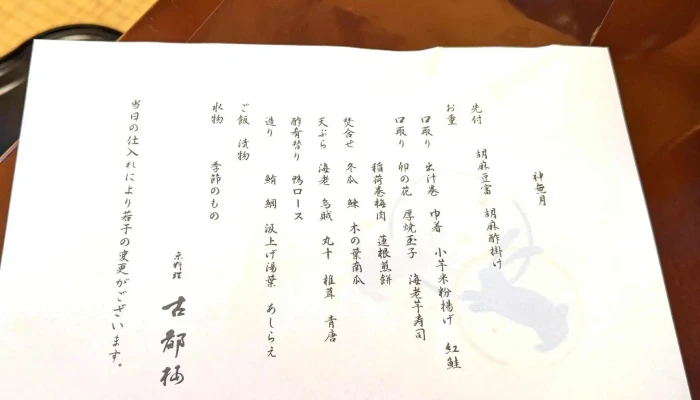 神無月
先付　胡麻豆富　胡麻酢掛け
お重
口取り　出汁巻　巾着　小芋米粉揚げ　紅鮭
口取り　卯の花　厚焼玉子　海老芋寿司
稲荷巻梅肉　蓮根煎餅
焚合せ　冬瓜　鰊　木の葉南瓜
天ぷら　海老　烏賊　丸十　椎茸　青唐
酢肴替り　鴨ロース
造り　鮪　鯛　汲上げ湯葉　あしらえ
ご飯　漬物
水物　季節のもの
京料理　古都梅
当日の仕入れにより若干の変更がございます。